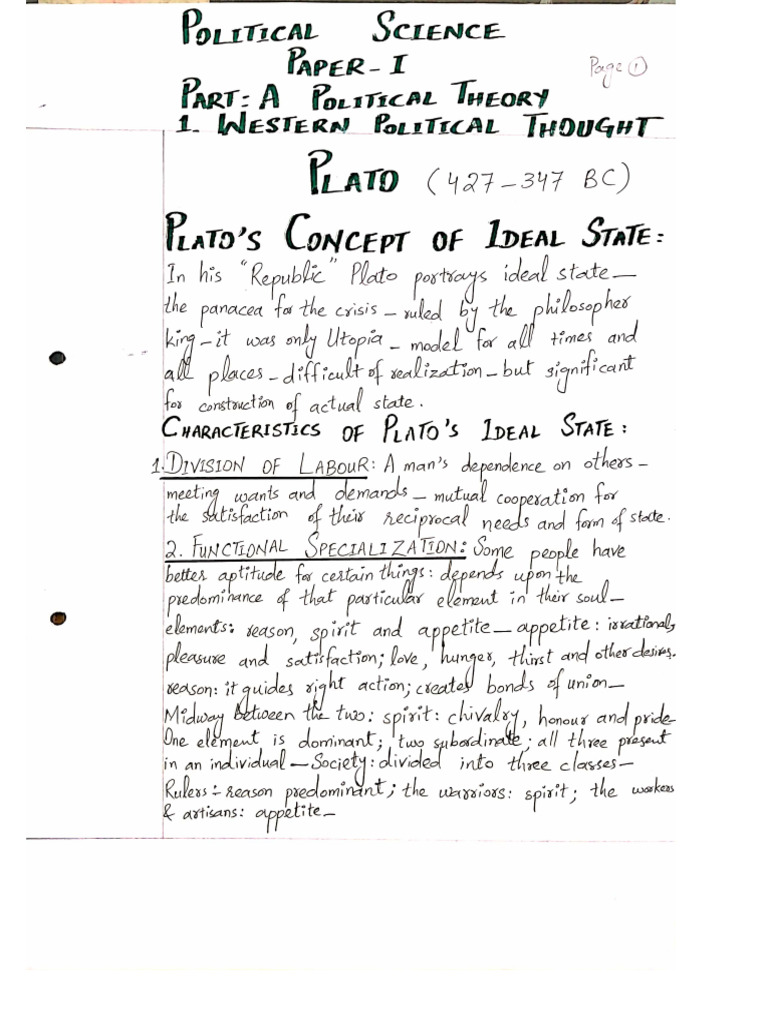 POLITICAL SCIENCE
PAPER-I
Page 1
PART: A POLITICAL THEORY
1. WESTERN POLITICAL THOUGHT
PLATO (427-347 BC)
PLATO'S CONCEPT OF IDEAL STATE:
In his "Republic" Plato portrays ideal state—
the panacea for the crisis – ruled by the philosopher
king – it was only Utopia – model for all times and
all places – difficult of realization – but significant
for construction of actual state.
CHARACTERISTICS OF PLATO'S IDEAL STATE:
1. DIVISION OF LABOUR: A man's dependence on others –
meeting wants and demands – mutual cooperation for
the satisfaction of their reciprocal needs and form of state.
2. FUNCTIONAL SPECIALIZATION: Some people have
better aptitude for certain things: depends upon the
predominance of that particular element in their soul—
elements: reason, spirit and appetite – appetite: irrational,
pleasure and satisfaction; love, hunger, thirst and other desires.
reason: it guides right action; creates bonds of union—
Midway between the two: spirit: chivalry, honour and pride
One element is dominant; two subordinate; all three present
in an individual – Society: divided into three classes—
Rulers:- reason predominant; the warriors: spirit; the workers
& artisans: appetite—